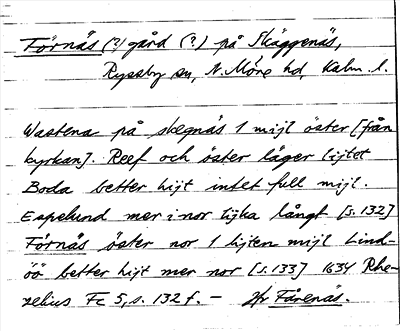 Törnås (?) gård (?) på Skäggenäs,
Ryssby sn, N. Möre hd, Kalm. l.
Wastena på skegnäs 1 mijl öster [från
kyrkan]. Reef och öster läger lijtet
Boda better hijt intet full mijl.
Espelund mer i nor lijka långt [s. 132]
Förnås öster nor 1 lijten mijl Lind-
öö better hijt mer nor [s. 133] 1634 Rhe-
zelius Fc 5, s. 132 f. – Jfr Fårenäs.